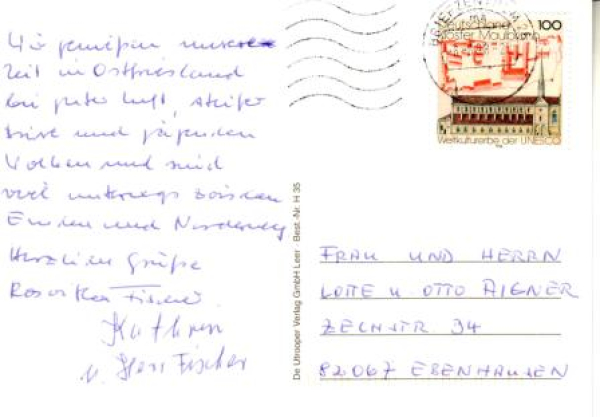 Wir genießen unsere
Zeit in Ostfriesland
bei guter Luft, steifer
Brise und jagenden
Wolken und sind
viel unterwegs zwischen
Emden und Norderney
Herzliche Grüße
Roswitha Fischer
Kathrin
u. Herr Fischer
De Utrooper Verlag GmbH Leer · Best.-Nr. H 35
BRIEFZENTRUM
Deutschland 100
Kloster Maulbronn
Weltkulturerbe der UNESCO
FRAU UND HERRN
LOTTE U. OTTO AIGNER
ZECHSTR 34
82067 EBENHAUSEN